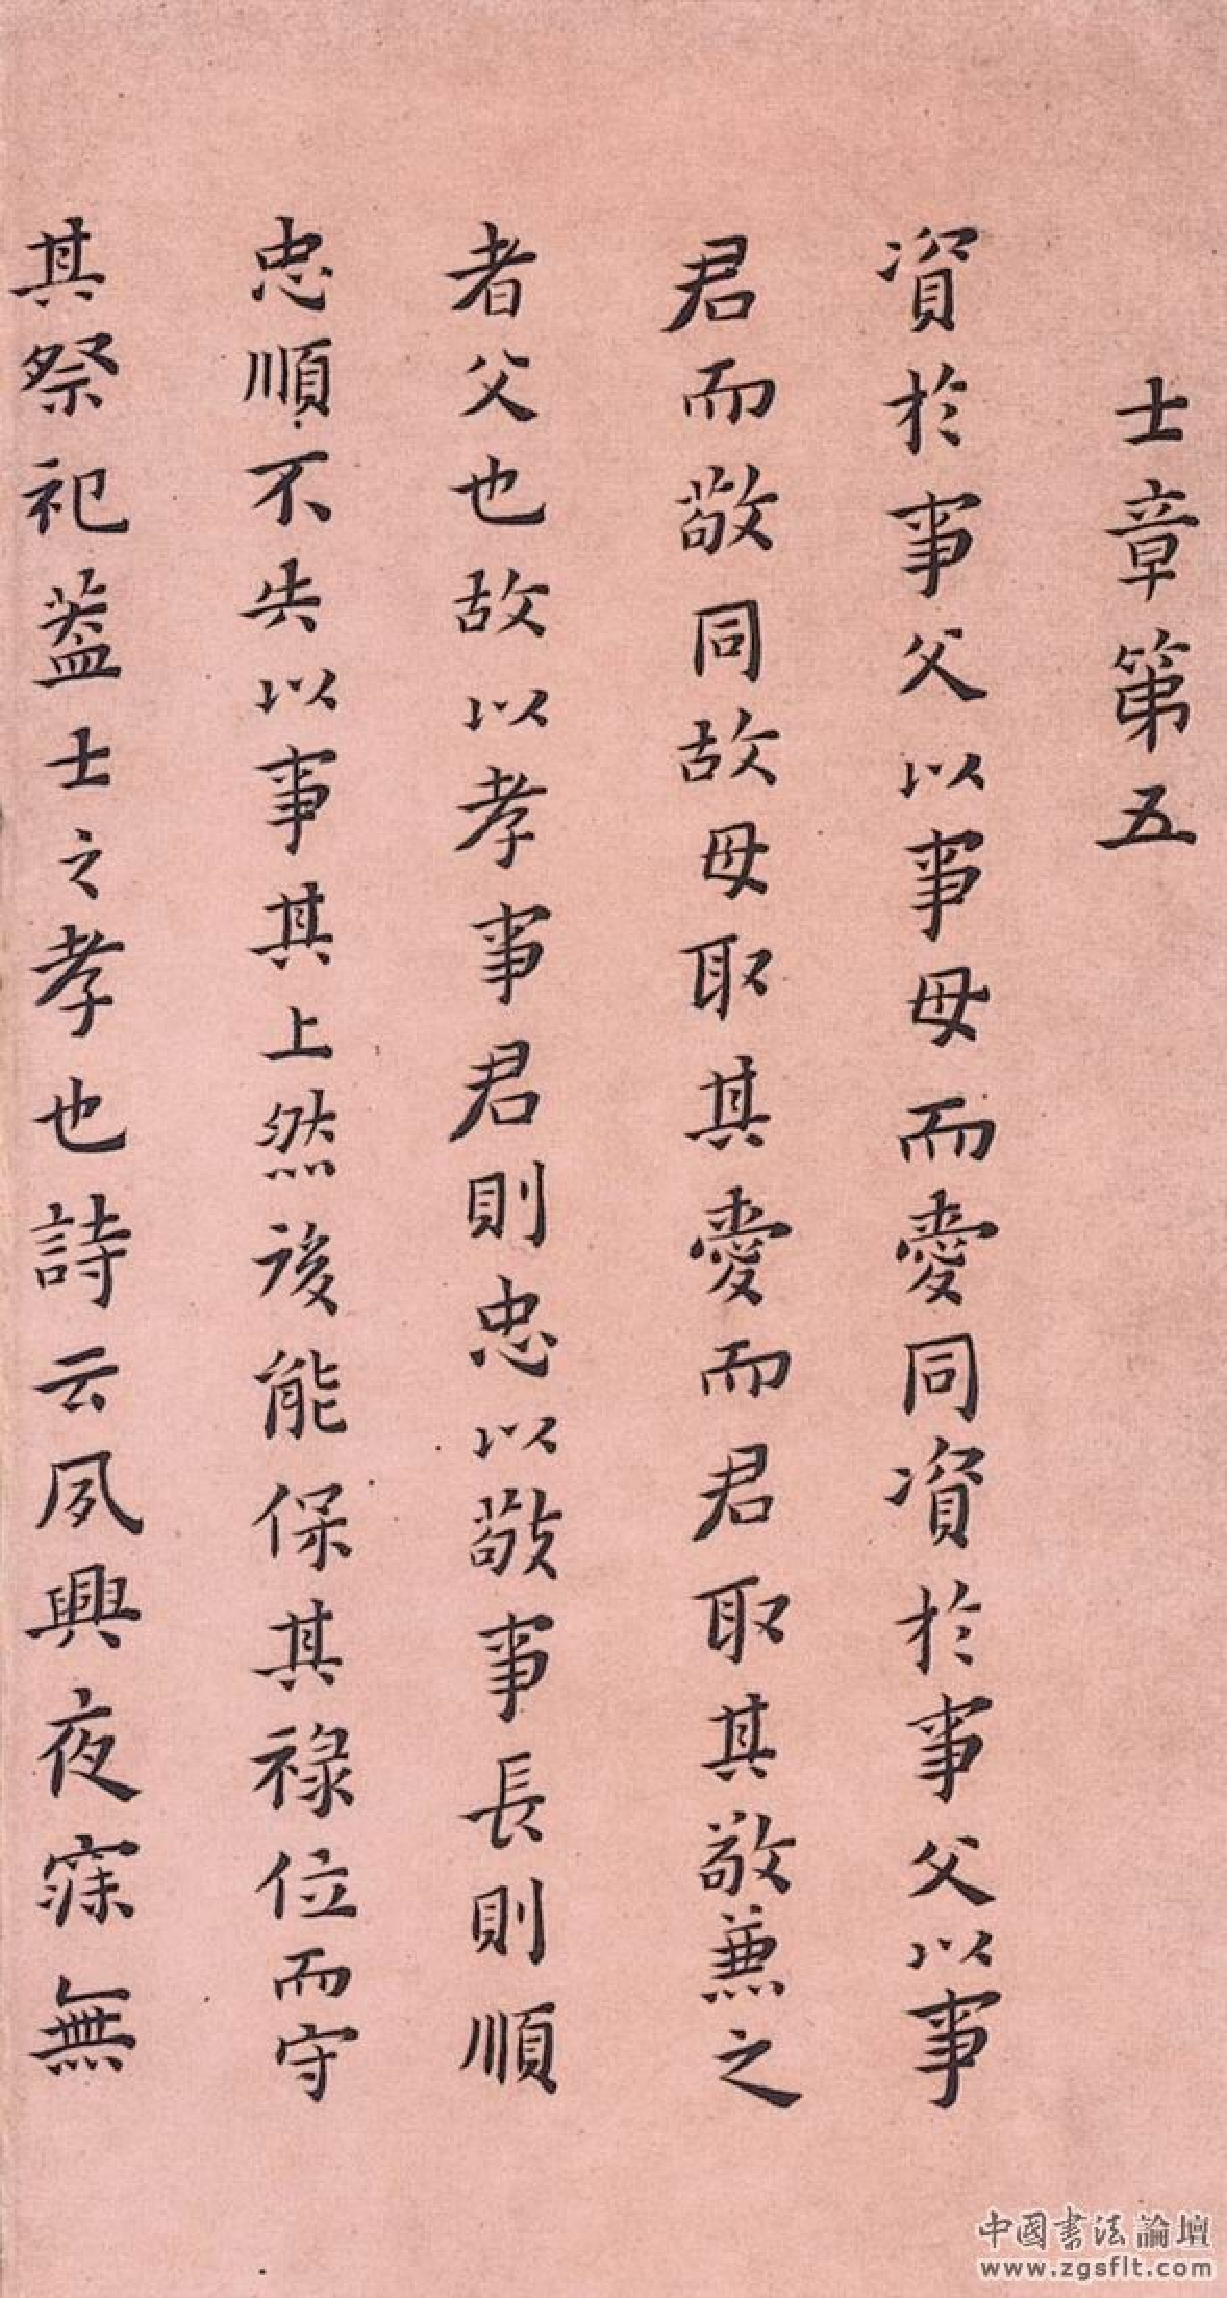 士章第五
資於事父以事母而愛同資於事父以事
君而敬同故母取其愛而君取其敬兼之
者父也故以孝事君則忠以敬事長則順
忠順不失以事其上然後能保其祿位而守
其祭祀蓋士之孝也詩云夙興夜寐無
中國書法論壇
www.zgsflt.com